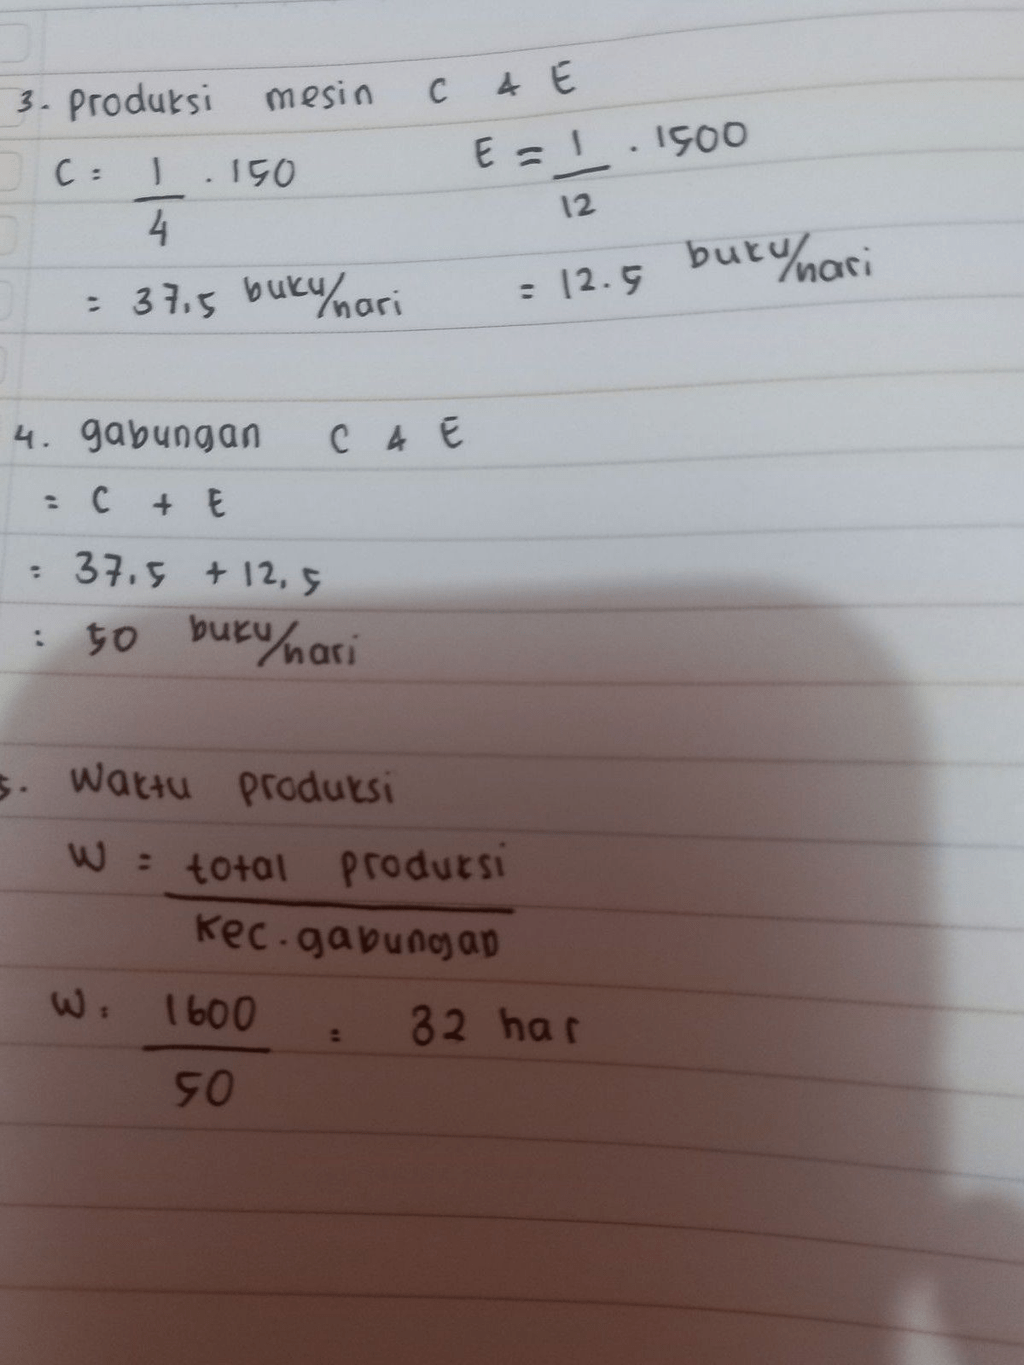 3. Produksi mesin C & E
C = 1/4 . 150 E = 1/12 . 1500
= 37,5 buku/hari = 12.5 buku/hari
4. gabungan C & E
= C + E
= 37,5 + 12,5
= 50 buku/hari
5. Waktu produksi
W = total produksi
kec. gabungan
W = 1600/50 = 32 har